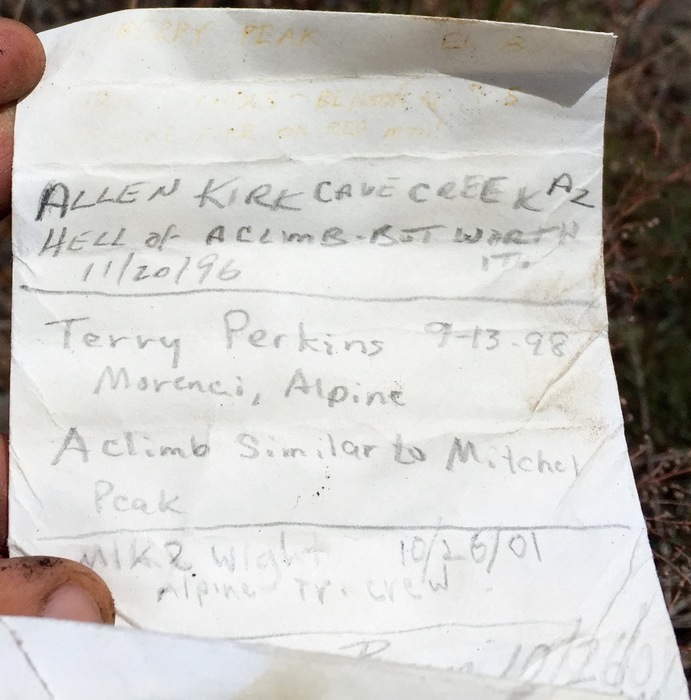 PEAK
ALLEN KIRK CAVE CREEK AZ
HELL of A CLIMB-BUT WORTH
IT.
11/20/96
Terry Perkins 9-13-98
Morenci, Alpine
A climb Similar to Mitchel
Peak
MIKE Wight 10/26/01
Alpine Tr. crew